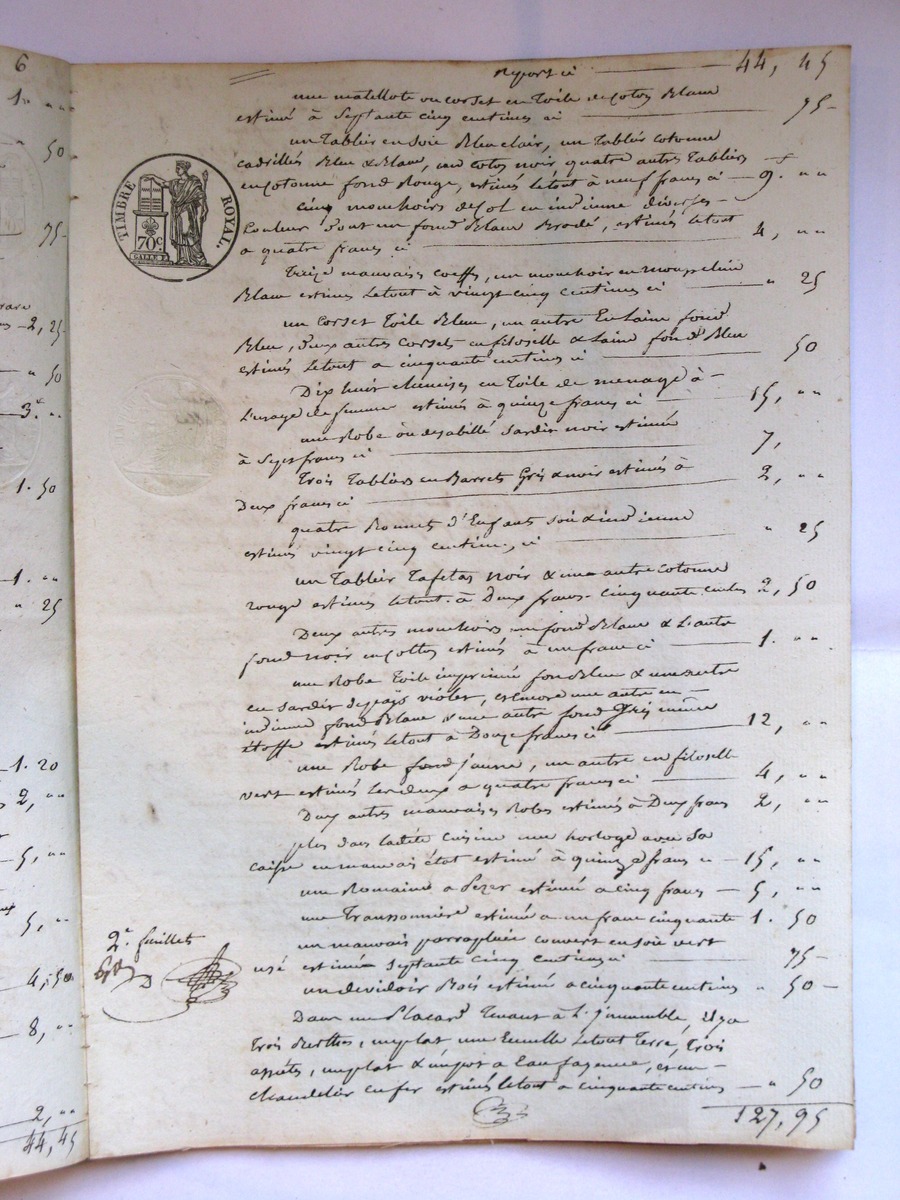 6
1. " "
50
75-
2, 25-
" 50
3. "
1. 50
1. "
" 25
1. 20
2, "
5, "
5, "
4, 50
8, "
2, "
44, 45
TIMBRE ROYAL.
70c
2e. feuillet
Report ci 44, 45
une matellote ou corset en Toile de Coton Blanc
estimé à Septante cinq centimes ci 75-
un Tablier en soie Bleu clair, un Tablié cotonne
cadrillés Bleu & Blanc, un Coton noir quatre autres Tabliers
en cotonne fond Rouge, estimés le tout à neuf francs ci 9. " "
cinq mouchoirs de Col en indienne diverses-
Couleur dont un fond Blanc Brodé, estimés le tout
a quatre francs ci 4, " "
Treize mauvaises coeffs, un mouchoir en mousseline
Blanc estimés Le tout à vingt cinq Centimes ci " 25
un Corset Toile Bleu, un autre En Laine fond
Bleu, deux autres Corsets en filoselle & Laine fond Bleu
estimés Le tout a cinquante centimes ci 50
Dix huit chemises en Toile de menage à-
L'usage de femme estimés à quinze francs ci 15, " "
une Robe ou desabillé Sardis noir estimée
à Sept francs ci 7,
Trois Tabliers en Barrets Gris & noir estimés à
Deux francs ci 2, " "
quatre Bonnets d'Enfants soie & indienne
estimés vingt cinq centimes, ci " 25
un Tablier Tafetas noir & un autre Cotonne
rouge estimés le tout à Deux francs cinquante centimes 2, 50
Deux autres mouchoirs un fond Blanc & L'autre
fond noir en cotton estimés à un franc ci 1. " "
une Robe Toile imprimé fond Bleu & une autre
en Sardis de pays violet, et encore une autre en-
indienne fond Blanc & une autre fond Gris même
étoffe estimés Le tout à Douze francs ci 12, " "
une Robe fond jaune, un autre en filoselle
vert estimés les deux a quatre francs ci 4, " "
Deux autres mauvaises Robes estimés à Deux francs 2, " "
plus dans ladite cuisine une horloge avec sa
caisse en mauvais état estimé à quinze francs ci 15, " "
une Romaine a Pezer estimée a cinq francs 5, " "
une estimée a un franc cinquante 1. 50
un mauvais parrapluie couvert en soie vert
usé estimé Septante cinq centimes ci 75-
un devidoir Bois estimé a cinquante centimes " 50-
Dans un Placard Tenant à L'immeuble, il y a
Trois Berthes, un plat une Ecuelle Le tout Terre, Trois
assiéts, un plat & un pot a Eau fayence, et un-
Chandelier en fer estimés Le tout a cinquante centimes " 50
127, 95